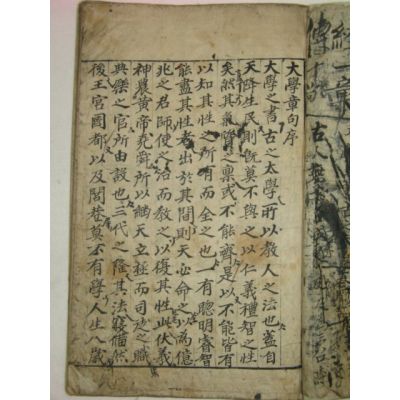 經一章
傳十
古
大學章句序
大學之書古之太學所以教人之法也蓋自
天降生民則既莫不與之以仁義禮智之性
矣然其氣質之稟或不能齊是以不能皆有
以知其性之所有而全之也一有聰明睿智
能盡其性者出於其間則天必命之以為億
兆之君師使之治而教之以復其性此伏羲
神農黃帝堯舜所以繼天立極而司徒之職
典樂之官所由設也三代之隆其法寖備然
後王宮國都以及閭巷莫不有學人生八歲